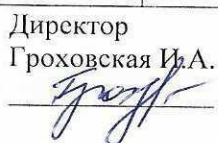 Директор
Гроховская И.А.